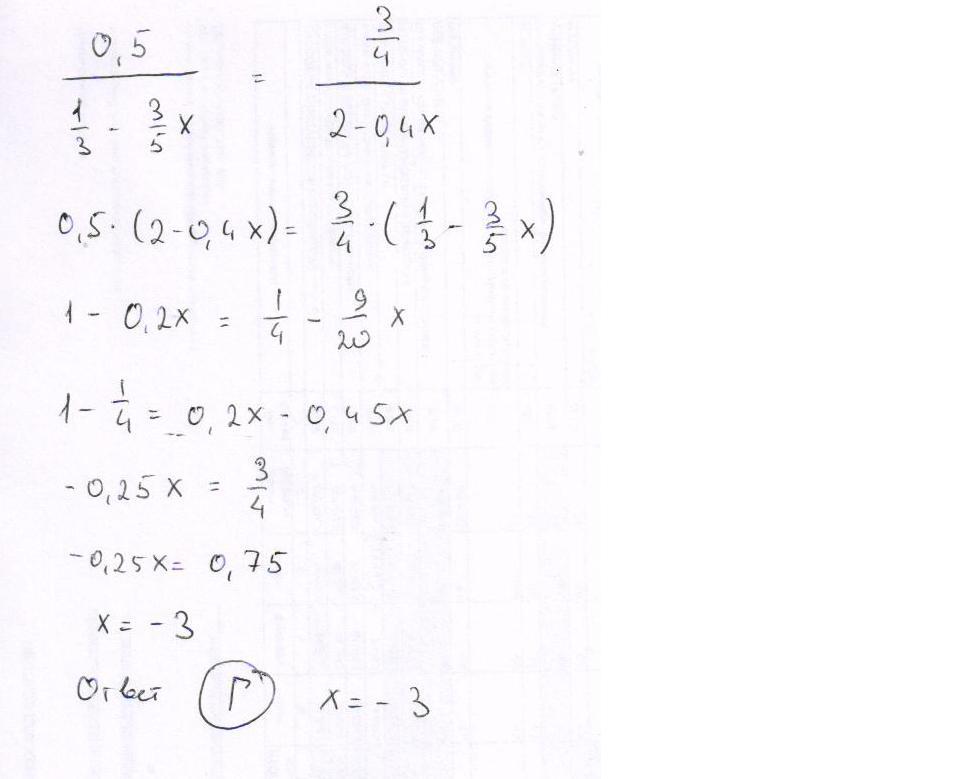 0,5 / (1/3 - 3/5 x) = 3/4 / (2-0,4x)
0,5·(2-0,4x)= 3/4·(1/3 - 3/5 x)
1 - 0,2x = 1/4 - 9/20 x
1 - 1/4 = 0,2x - 0,45x
-0,25x = 3/4
-0,25x= 0,75
x= -3
Ответ Г x= - 3